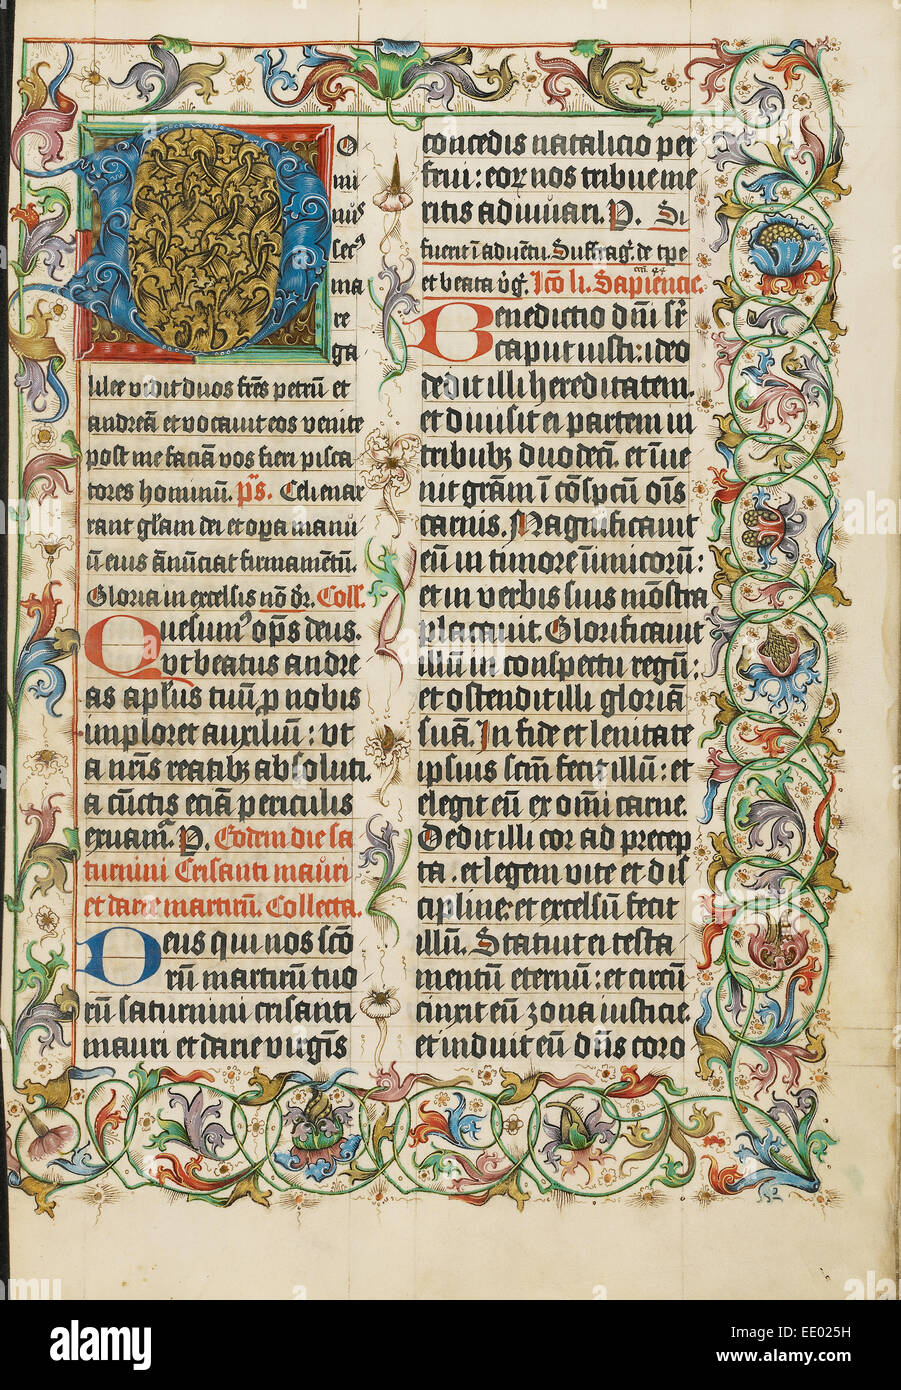 D o
mi
nus
sec9
ma
re
ga
lilee vidit duos fr̄es petrū et
andreā et vocavit eos venite
post me faciā vos fieri pisca
tores hominū. p̄s. Celi enar
rant gl̄am dei et opa manū
ū eius ānūciat firmamētū.
Gloria in excelsis nō dr̄. Coll.
Quesum9 op̄s deus.
vt beatus andre
as apl̄us tuū ꝓ nobis
imploret auxiliū : vt
a nr̄is reatibꝫ absoluti.
a cūctis eciā periculis
exuamr̄. P. Eodem die sa
turnini Crisanti mauri
et darie martirū. Collecta.
Deus qui nos scō
rū martirū tuo
rū saturnini crisanti
mauri et darie virgīs
concedis natalicio per
frui : eoꝝ nos tribue me
ritis adiuvari. P. Si
fuerit ī advētu. Suffraḡ. de tp̄e
et beata v̄g̃. Lc̄o li. Sapiencie.
Benedictio dn̄i sr̄
caput iusti : ideo
dedit illi hereditatem.
et divisit ei partem in
tribubꝫ duodecī. et īue
nit gr̄am ī cōspcū oīs
carnis. Magnificavit
eū in timore īimicorū :
et in verbis suis mōstra
placavit. Glorificavit
illū in conspectu regū :
et ostendit illi gloriā
suā. In fide et lenitate
ipsius scm̄ fecit illū : et
elegit eū ex omī carne.
Dedit illi cor ad precep
ta. et legem vite et dis
cipline : et excelsū fecit
illū. Statuit ei testa
mentū eternū : et circū
cinxit eū zona iusticie
et induit eū dn̄s coro
alamy
a
alamy stock photo
EE025H
www.alamy.com